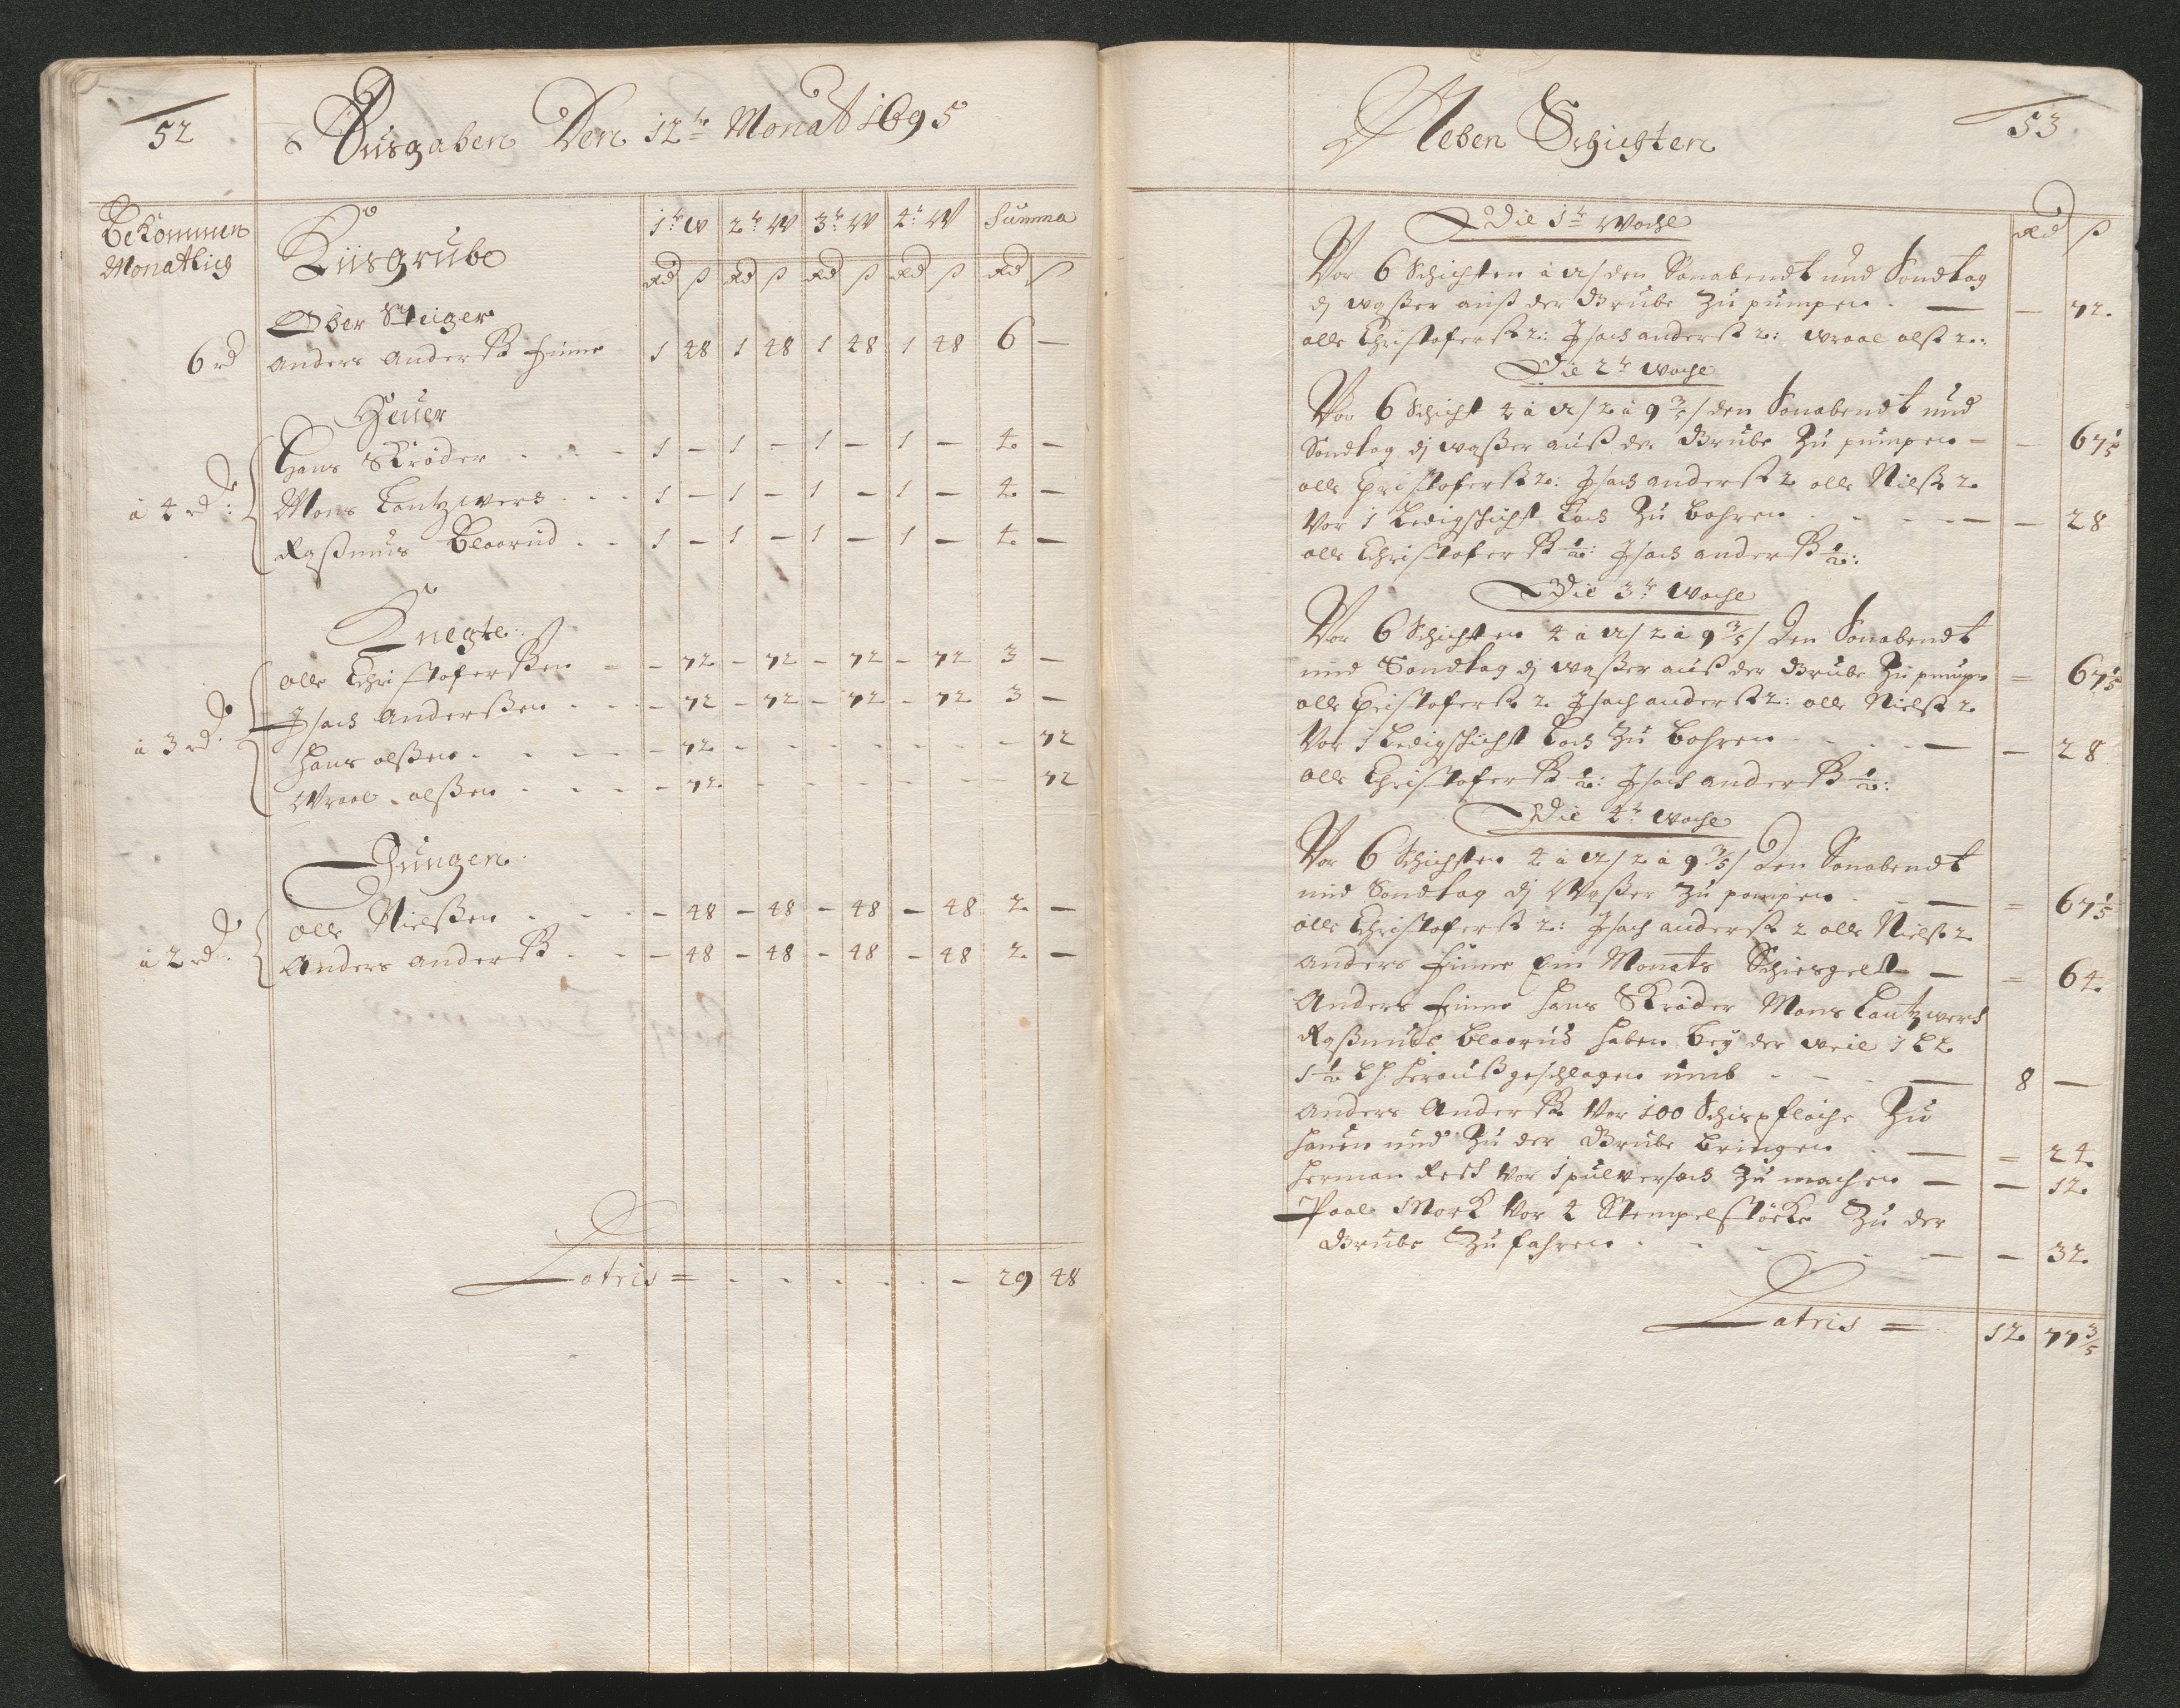 52
Ausgaben Den 12te Monat 1695
Bekommen
Monatlich
Kiisgrube
1te W 2te W 3te W 4te W Summa
Rd ß Rd ß Rd ß Rd ß Rd ß
Ober Steiger
6 rd Anders Anderß Finne 1 48 1 48 1 48 1 48 6 —
Heuer
Hans Ströder - - - 1 – 1 – 1 – 1 – 4 –
à 4 rd: Mons Lantzwers - - - 1 – 1 – 1 – 1 – 4 –
Raßmus Blaarud - - 1 – 1 – 1 – 1 – 4 –
Knegte
Olle Christoferßen - - 72 – 72 – 72 – 72 3 –
Isach Anderßen - - - 72 – 72 – 72 – 72 3 –
à 3 rd. Hans olßen - - - - 72 - - - - - - - 72
Wraal olßen - - - - 72 - - - - - - 72
Jungen
Olle Nielßen - - - - 48 – 48 – 48 – 48 2 –
à 2 rd. Anders anderß - - - 48 – 48 – 48 – 48 2 –
Latris = - - - - - - 29 48
53
Neben Schichten
Rd ß
Die 1te Woche
Vor 6 Schichten à 12/ den Sonabendt und Sondtag
dz waßer auß der Grube Zu pumpen — – 72
olle Christoferß 2: Isach anderß 2: wraal olß 2:
Die 2te woche
Vor 6 Schicht 4 à 12/ 2 à 9 3/5/ den Sonabendt und
Sondtag dz waßer auß der Grube Zu pumpen – – 67 1/5
olle Christoferß 2: Isach anderß 2 olle Nielß 2
Vor 1 Ledigschicht Loch Zu bohren - - - – – 28
olle Christoferß 1/2: Isach anderß 1/2:
Die 3te woche
Vor 6 Schichten 4 à 12/ 2 à 9 3/5/ Den Sonabendt
und Sondtag dz waßer auß der Grube Zu pumpen = 67 1/5
olle Christoferß 2 Isach anderß 2: olle Nielß 2
Vor 1 Ledigschicht Loch Zu bohren - - - — – 28
olle Christoferß 1/2: Isach anderß 1/2:
Die 4te woche
Vor 6 Schichten 4 à 12/ 2 à 9 3/5/ Den Sonabendt
und Sondtag dz Waßer Zu pompen - — = 67 1/5
olle Christoferß 2: Isach anderß 2 olle Nielß 2
Anders Finne Ein Monats Schiesgelt — = 64
Anders Finne Hans Ströder Mons Lantzwers
Raßmus Blaarud haben bey der weil 1 L 2
1 1/2 L h. heraußgeschlagen umb - - - — 8 —
Anders Anderß Vor 100 Schispflöche Zu
hauen und Zu der Grube bringen - — = 24
Herman Vor 1 pulversach Zu machen — – 12
Paal Mork Vor 4 Stempelstöcke Zu der
Grube Zu fahren - - - - - — – 32
Latris = 12 77 3/5